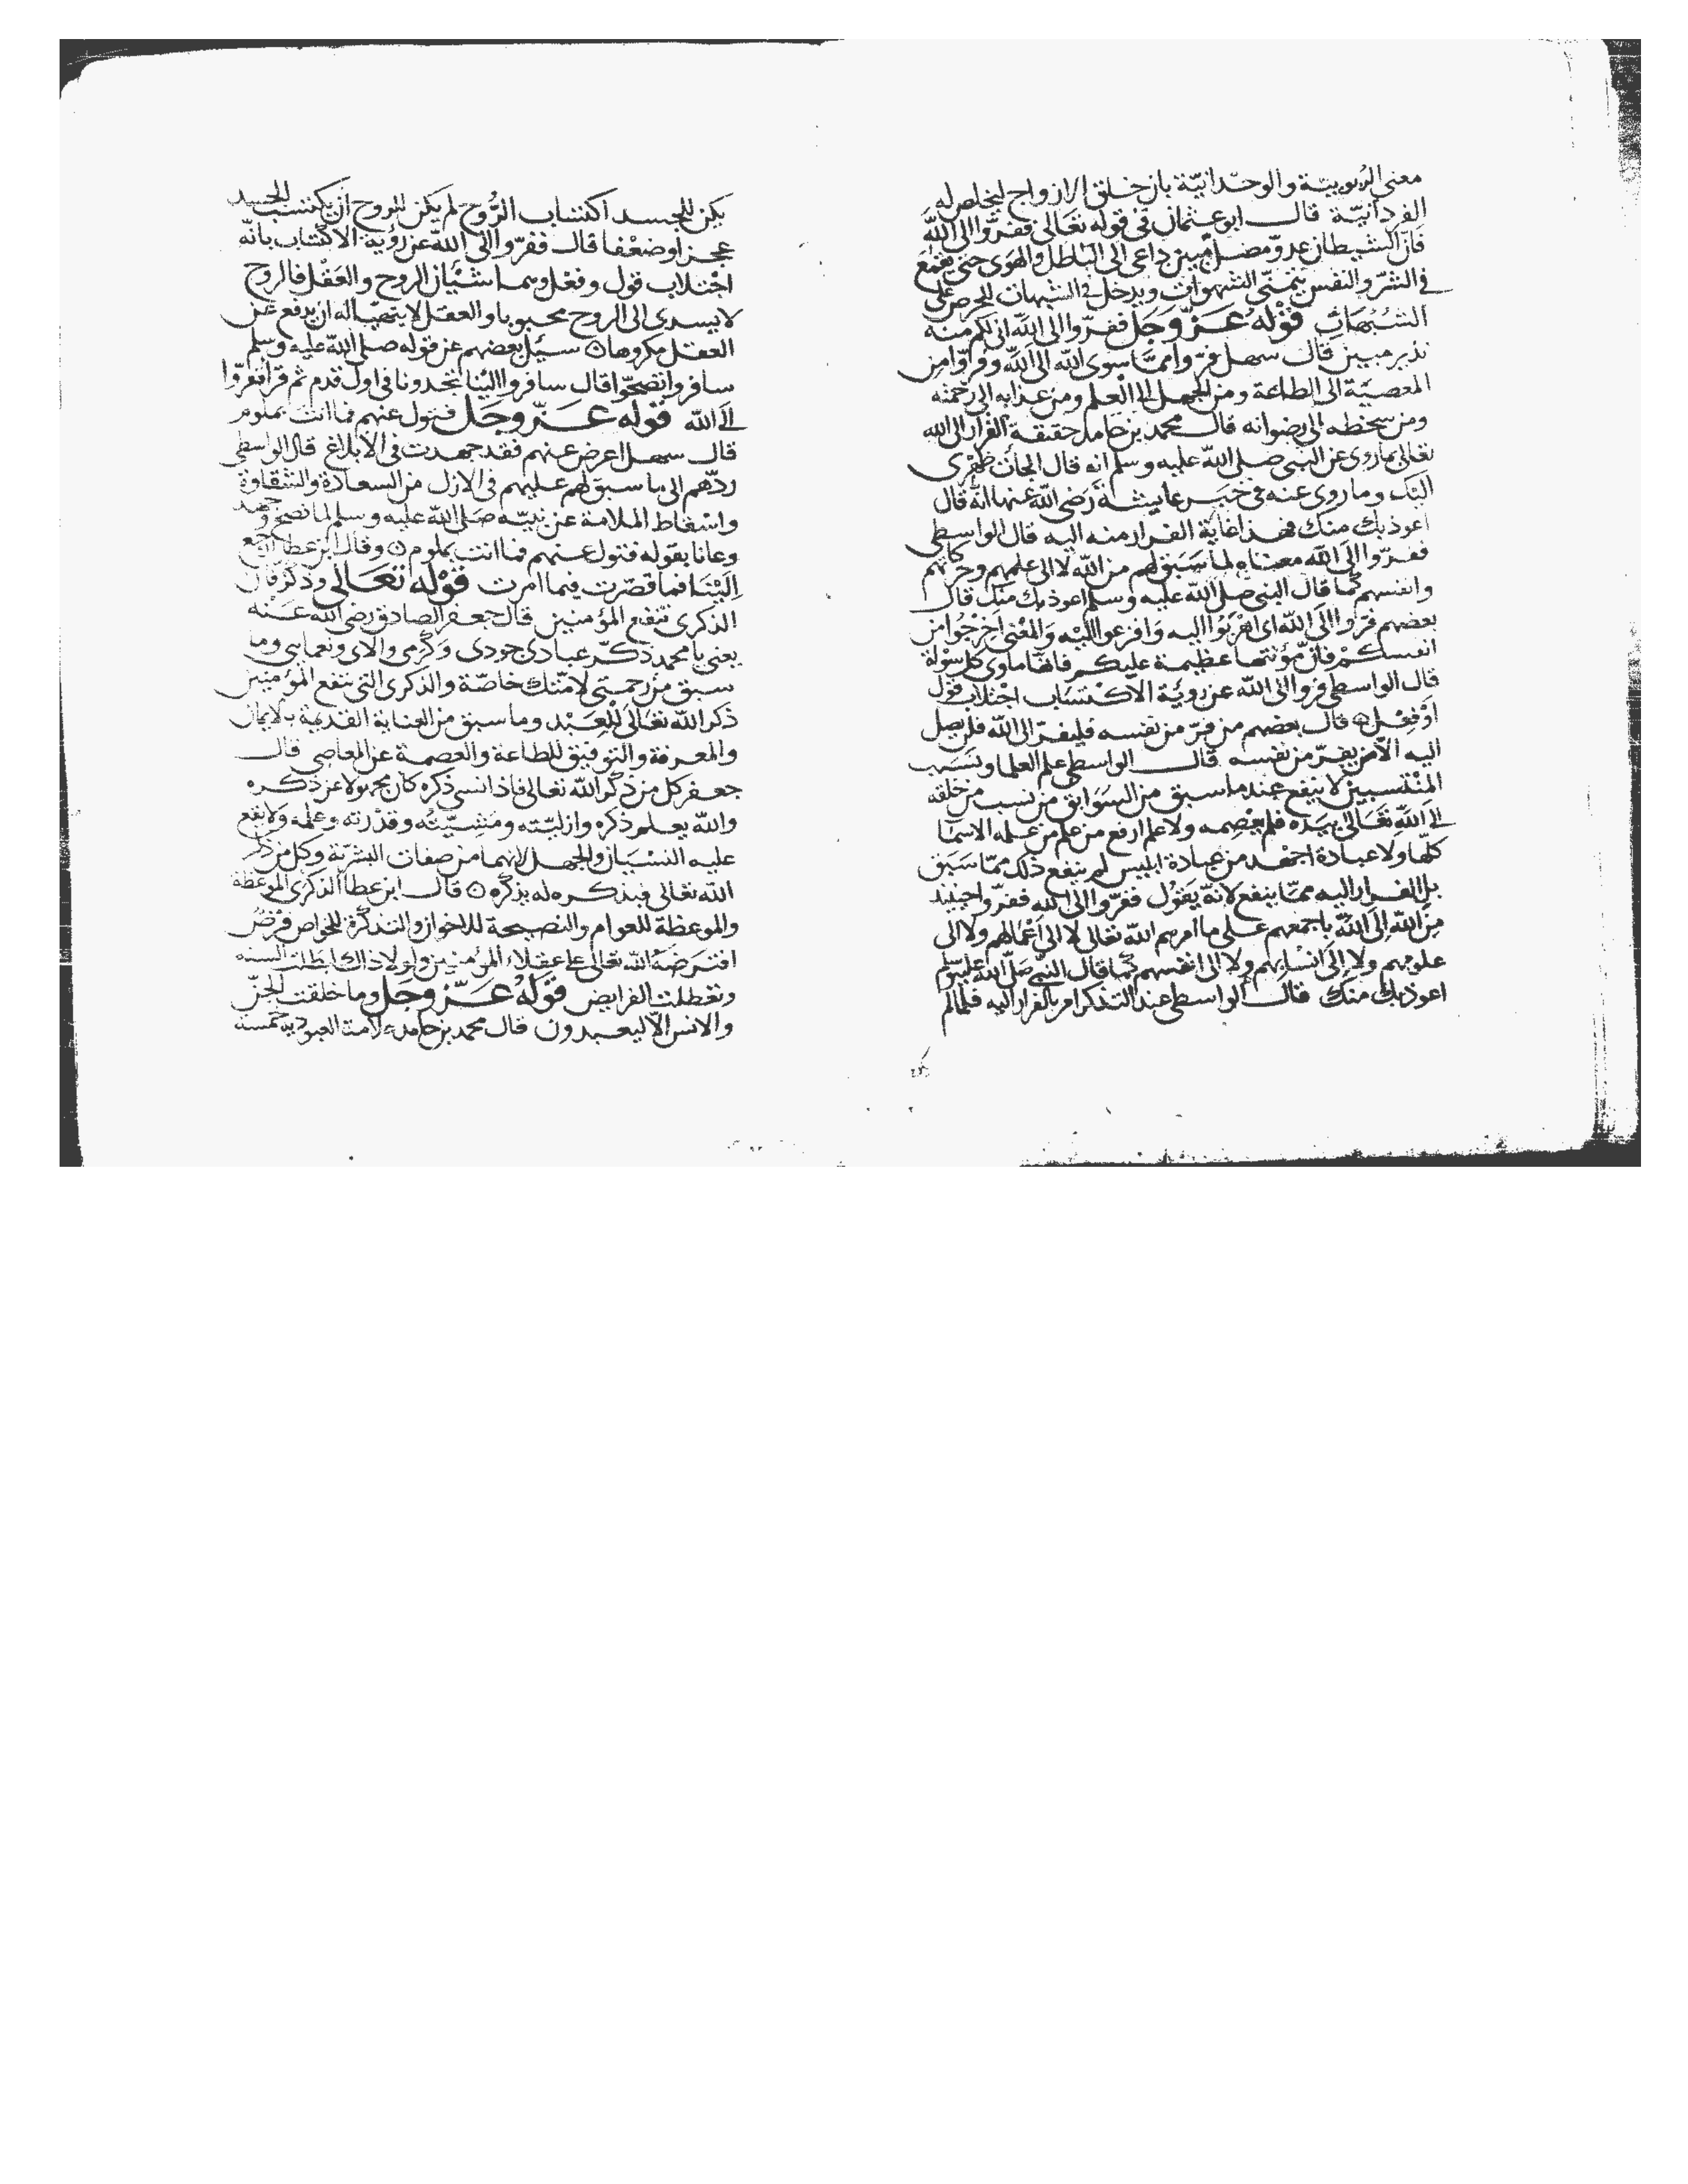 معنى الربوبيّة والوحدانيّة بان خلق الازواج ليخلص له
الفردانيّة قال ابو عثمان في قوله تعالى ففرّوا الى الله
فانّ الشيطان عدوّ مضلّ مبين داعى الى الباطل والهوى حتى يقمع
في الشرّ والنفس يتمنّى الشهوات ويدخل في الشبهات للحرص على
الشبهات قوله عزّ وجلّ ففرّوا الى الله انى لكم منه
نذير مبين قال سهل فرّوا ممّا سوى الله الى الله وفرّوا من
المعصيّة الى الطاعة ومن الجهل الى العلم ومن عذابه الى رحمته
ومن سخطه الى رضوانه قال محمد بن حامد حقيقة الفرار الى الله
تعالى ما روى عن النبى صلى الله عليه وسلم انه قال الجات ظهرى
اليك وما روى عنه في خبر عايشة رضى الله عنها انّه قال
اعوذ بك منك فهذا غاية الفرار منه اليه قال الواسطى
ففرّوا الى الله معناه لما سبق لهم من الله لا الى علمهم وحركاتهم
وانفسهم كما قال النبى صلى الله عليه وسلم اعوذ بك منك قال
بعضهم فرّوا الى الله اى اهربوا اليه وافزعوا اليه والمعنى اخرجوا من
انفسكم فانّ مؤنتها عظيمة عليكم فانها ماوى كل سولة
قال الواسطى فروا الى الله عن روية الاكتساب اجتلاب قول
او فعل قال بعضهم من فرّ من نفسه فليفرّ الى الله فلن يصل
اليه الّا من يفرّ من نفسه قال الواسطى علم العلما ونسب
المنتسبين لا ينفع عندما سبق من السوابق من نسب من خلقه
الى الله تعالى بيده فلم يعصمه ولا علم ارفع من علم من علمه الاسما
كلّها ولا عبادة اجهد من عبادة ابليس لم ينفع ذلك ممّا سبق
بل الفرار اليه ممّا ينفع لانّه يقول ففرّوا الى الله ففرّوا حينيذ
من الله الى الله باجمعهم على ما امرهم الله تعالى لا الى اعمالهم ولا الى
علومهم ولا الى انسابهم ولا الى انفسهم كما قال النبى صلى الله عليه وسلم
اعوذ بك منك قال الواسطى عند التذكر امر بالفرار اليه فلما لم
يكن للجسد اكتساب الروح لم يكن للروح ان يكتسب للجسد
عجزا وضعفا قال ففرّوا الى الله عن رؤية الاكتساب بانّه
اجتلاب قول وفعل وهما شيئان الروح والعقل فالروح
لا يسدى الى الروح محبوبا والعقل لا يتهيّا له ان يدفع عن
العقل مكروها سئل بعضهم عن قوله صلى الله عليه وسلم
سافروا تصحّوا قال سافروا الينا تجدونا في اول قدم ثم قرا ففرّوا
الى الله قوله عزّ وجلّ فتول عنهم فما انت بملوم
قال سهل اعرض عنهم فقد جهدت في الابلاغ قال الواسطى
ردّهم الى ما سبق لهم عليهم في الازل من السعادة والشقاوة
واسقاط الملامة عن نبيّه صلى الله عليه وسلم لما نصح وجهد
وعانا بقوله فتول عنهم فما انت بملوم وقال ابن عطا ارجع
الينا فما قصّرت فيما امرت قوله تعالى وذكر فان
الذكرى تنفع المؤمنين قال جعفر الصادق رضى الله عنه
يعنى يا محمد ذكّر عبادى جودى وكرمى والاى ونعمايى وما
سبق من رحمتى لامّتك خاصّة والذكرى التى تنفع المؤمنين
ذكر الله تعالى للعبد وما سبق من العناية القديمة بالايمان
والمعرفة والتوفيق للطاعة والعصمة عن المعاصى قال
جعفر كل من ذكر الله تعالى فاذا نسى ذكره كان مجهولا عن ذكره
والله يعلم ذكره وازليّته ومشيّته وقدرته وعلمه ولا يقع
عليه النسيان والجهل لانهما من صفات البشريّة وكل من ذكر
الله تعالى فبذكره له يذكره قال ابن عطا الذكرى الموعظة
والموعظة للعوام والنصيحة للاخوان والتذكرة للخواص فرض
افترضه الله تعالى على عقلاء المؤمنين ولولا ذاك لبطلت السنة
وتعطلت الفرايض قوله عزّ وجلّ وما خلقت الجنّ
والانس الّا ليعبدون قال محمد بن حامد علامة العبودية خمسة